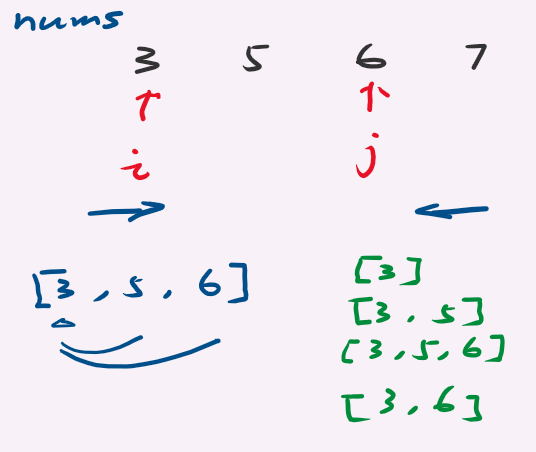 nums
3 5 6 7
i j
[3, 5, 6]
[3]
[3, 5]
[3, 5, 6]
[3, 6]